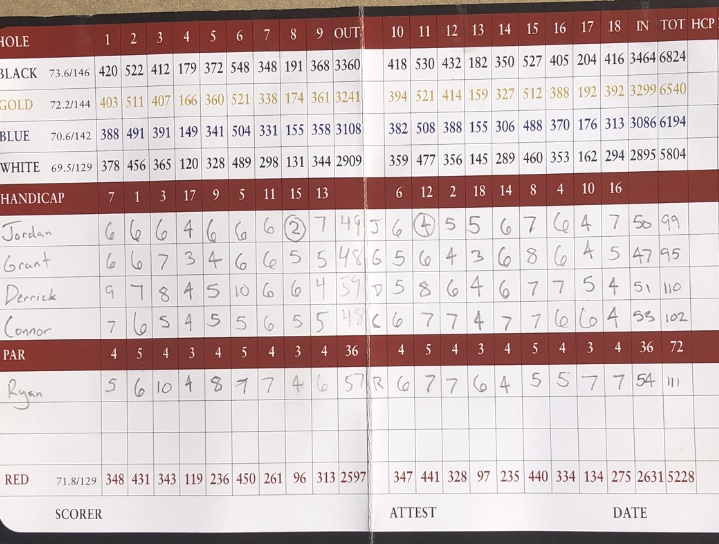 HOLE 1 2 3 4 5 6 7 8 9 OUT 10 11 12 13 14 15 16 17 18 IN TOT HCP
BLACK 73.6/146 420 522 412 179 372 548 348 191 368 3360 418 530 432 182 350 527 405 204 416 3464 6824
GOLD 72.2/144 403 511 407 166 360 521 338 174 361 3241 394 521 414 159 327 512 388 192 392 3299 6540
BLUE 70.6/142 388 491 391 149 341 504 331 155 358 3108 382 508 388 155 306 488 370 176 313 3086 6194
WHITE 69.5/129 378 456 365 120 328 489 298 131 344 2909 359 477 356 145 289 460 353 162 294 2895 5804
HANDICAP 7 1 3 17 9 5 11 15 13 6 12 2 18 14 8 4 10 16
Jordan 6 6 6 4 6 6 6 2 7 49 J 6 4 5 5 6 7 6 4 7 50 99
Grant 6 6 7 3 4 6 6 5 5 48 G 5 6 4 3 6 8 6 4 5 47 95
Derrick 9 7 8 4 5 10 6 6 4 59 D 5 8 6 4 6 7 7 5 4 51 110
Connor 7 6 5 4 5 5 6 5 5 48 C 6 7 7 4 7 7 6 6 4 53 102
PAR 4 5 4 3 4 5 4 3 4 36 4 5 4 3 4 5 4 3 4 36 72
Ryan 5 6 10 4 8 7 7 4 6 57 R 6 7 7 6 4 5 5 7 7 54 111
RED 71.8/129 348 431 343 119 236 450 261 96 313 2597 347 441 328 97 235 440 334 134 275 2631 5228
SCORER ATTEST DATE